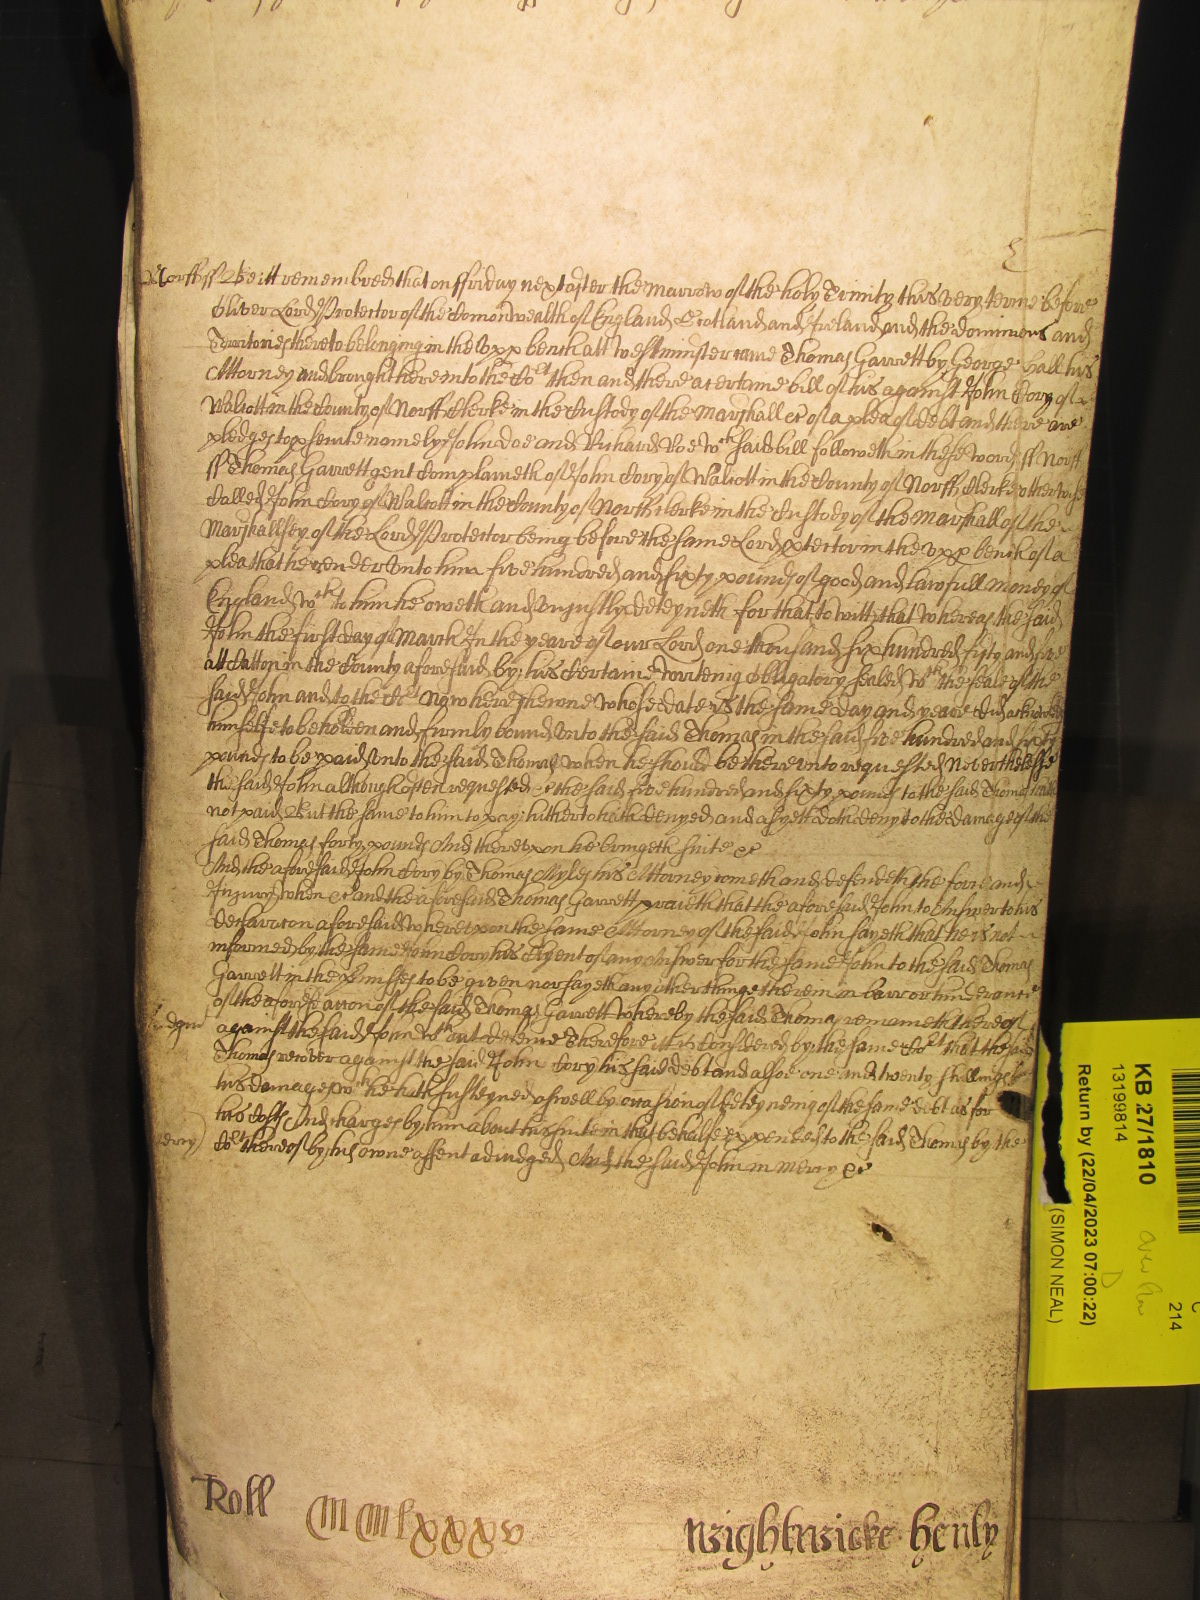 Norff ss Be itt remembred that on ffriday next after the Morrow of the holy Trinity this very terme before
Oliver Lord Protector of the Comonwealth of England Scotland and Ireland and the dominions and
Territories thereto belonging in the upp bench att Westminster came Thomas Garrett by George Hall his
Attorney and brought here into the Cort then and there a certaine bill of his against John Cory of
Walcott in the County of Norff Clerke in the Custody of the Marshall &c of a plea of debt and there are
pledges to psecute namely John Doe and Richard Roe wch said bill followeth in these words ss Norff
ss Thomas Garrett gent Complaineth of John Cory of Walcott in the County of Norff Clerke otherwise
Called John Cory of Walcott in the County of Norff Clerke in the Custody of the Marshall of the
Marshallsey of the Lord Protector being before the same Lord ptector in the upp bench of a
plea that he render unto him five hundred and sixty pounds of good and lawfull money of
England wch to him he oweth and unjustly deteyneth for that to witt that whereas the said
John the first day of March In the yeare of our Lord one thousand six hundred fifty and five
att Catton in the County aforesaid by his certaine writeing obligatory sealed wth the seale of the
said John and to the Cort now here shewne whose date is the same day and yeare did acknowledge
himselfe to be holden and firmly bound unto the said Thomas in the said five hundred and sixty
pounds to be paid unto the said Thomas when he should be thereunto requested Neverthelesse
the said John although often requested &c the said five hundred and sixty pounds to the said Thomas hath
not paid But the same to him to pay hitherto hath denyed and as yett doth deny to the damage of the
said Thomas forty pounds And thereupon he bringeth suite &c
And the aforesaid John Cory by Thomas Myles his Attorney cometh and defendeth the force and
Injury when &c and the aforesaid Thomas Garrett praieth that the aforesaid John to Answer to his
declaracon aforesaid whereupon the same Attorney of the said John sayeth that he is not
informed by the same John Cory his Clyent of any Answer for the same John to the said Thomas
Garrett in the pmisses to be given nor sayeth any other thinge therein in barr or hinderance
of the aforesd accon of the said Thomas Garrett whereby the said Thomas remaineth thereof
Judgmt against the said John wthout defence Therefore itt is Considered by the same Cort that the said
Thomas recover against the said John Cory his said debt and alsoe one and twenty shillings for
his damages wch he hath susteyned aswell by occasion of deteyneing of the same debt as for
his costs And charges by him about his suite in that behalfe expended to the said Thomas by the
Mercy Cort thereof by his owne assent adiudged And the said John in mercy &c
Roll MMlxxxv
Wightwicke Henly
KB 27/1810
13199814
Return by (22/04/2023 07:00:22)
(SIMON NEAL)
214